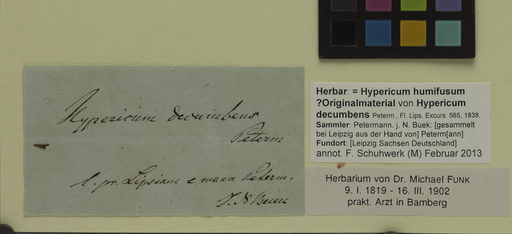 Hypericum decumbens
Peterm
l. pr. Lipsiam e manu Peterm.
J. N. Buek
Herbar: = Hypericum humifusum
?Originalmaterial von Hypericum
decumbens Peterm., Fl. Lips. Excurs: 565, 1838.
Sammler: Petermann. j. N. Buek: [gesammelt
bei Leipzig aus der Hand von] Peterm[ann]
Fundort: [Leipzig Sachsen Deutschland]
annot. F. Schuhwerk (M) Februar 2013
Herbarium von Dr. Michael FUNK
9. I. 1819 - 16. III. 1902
prakt. Arzt in Bamberg